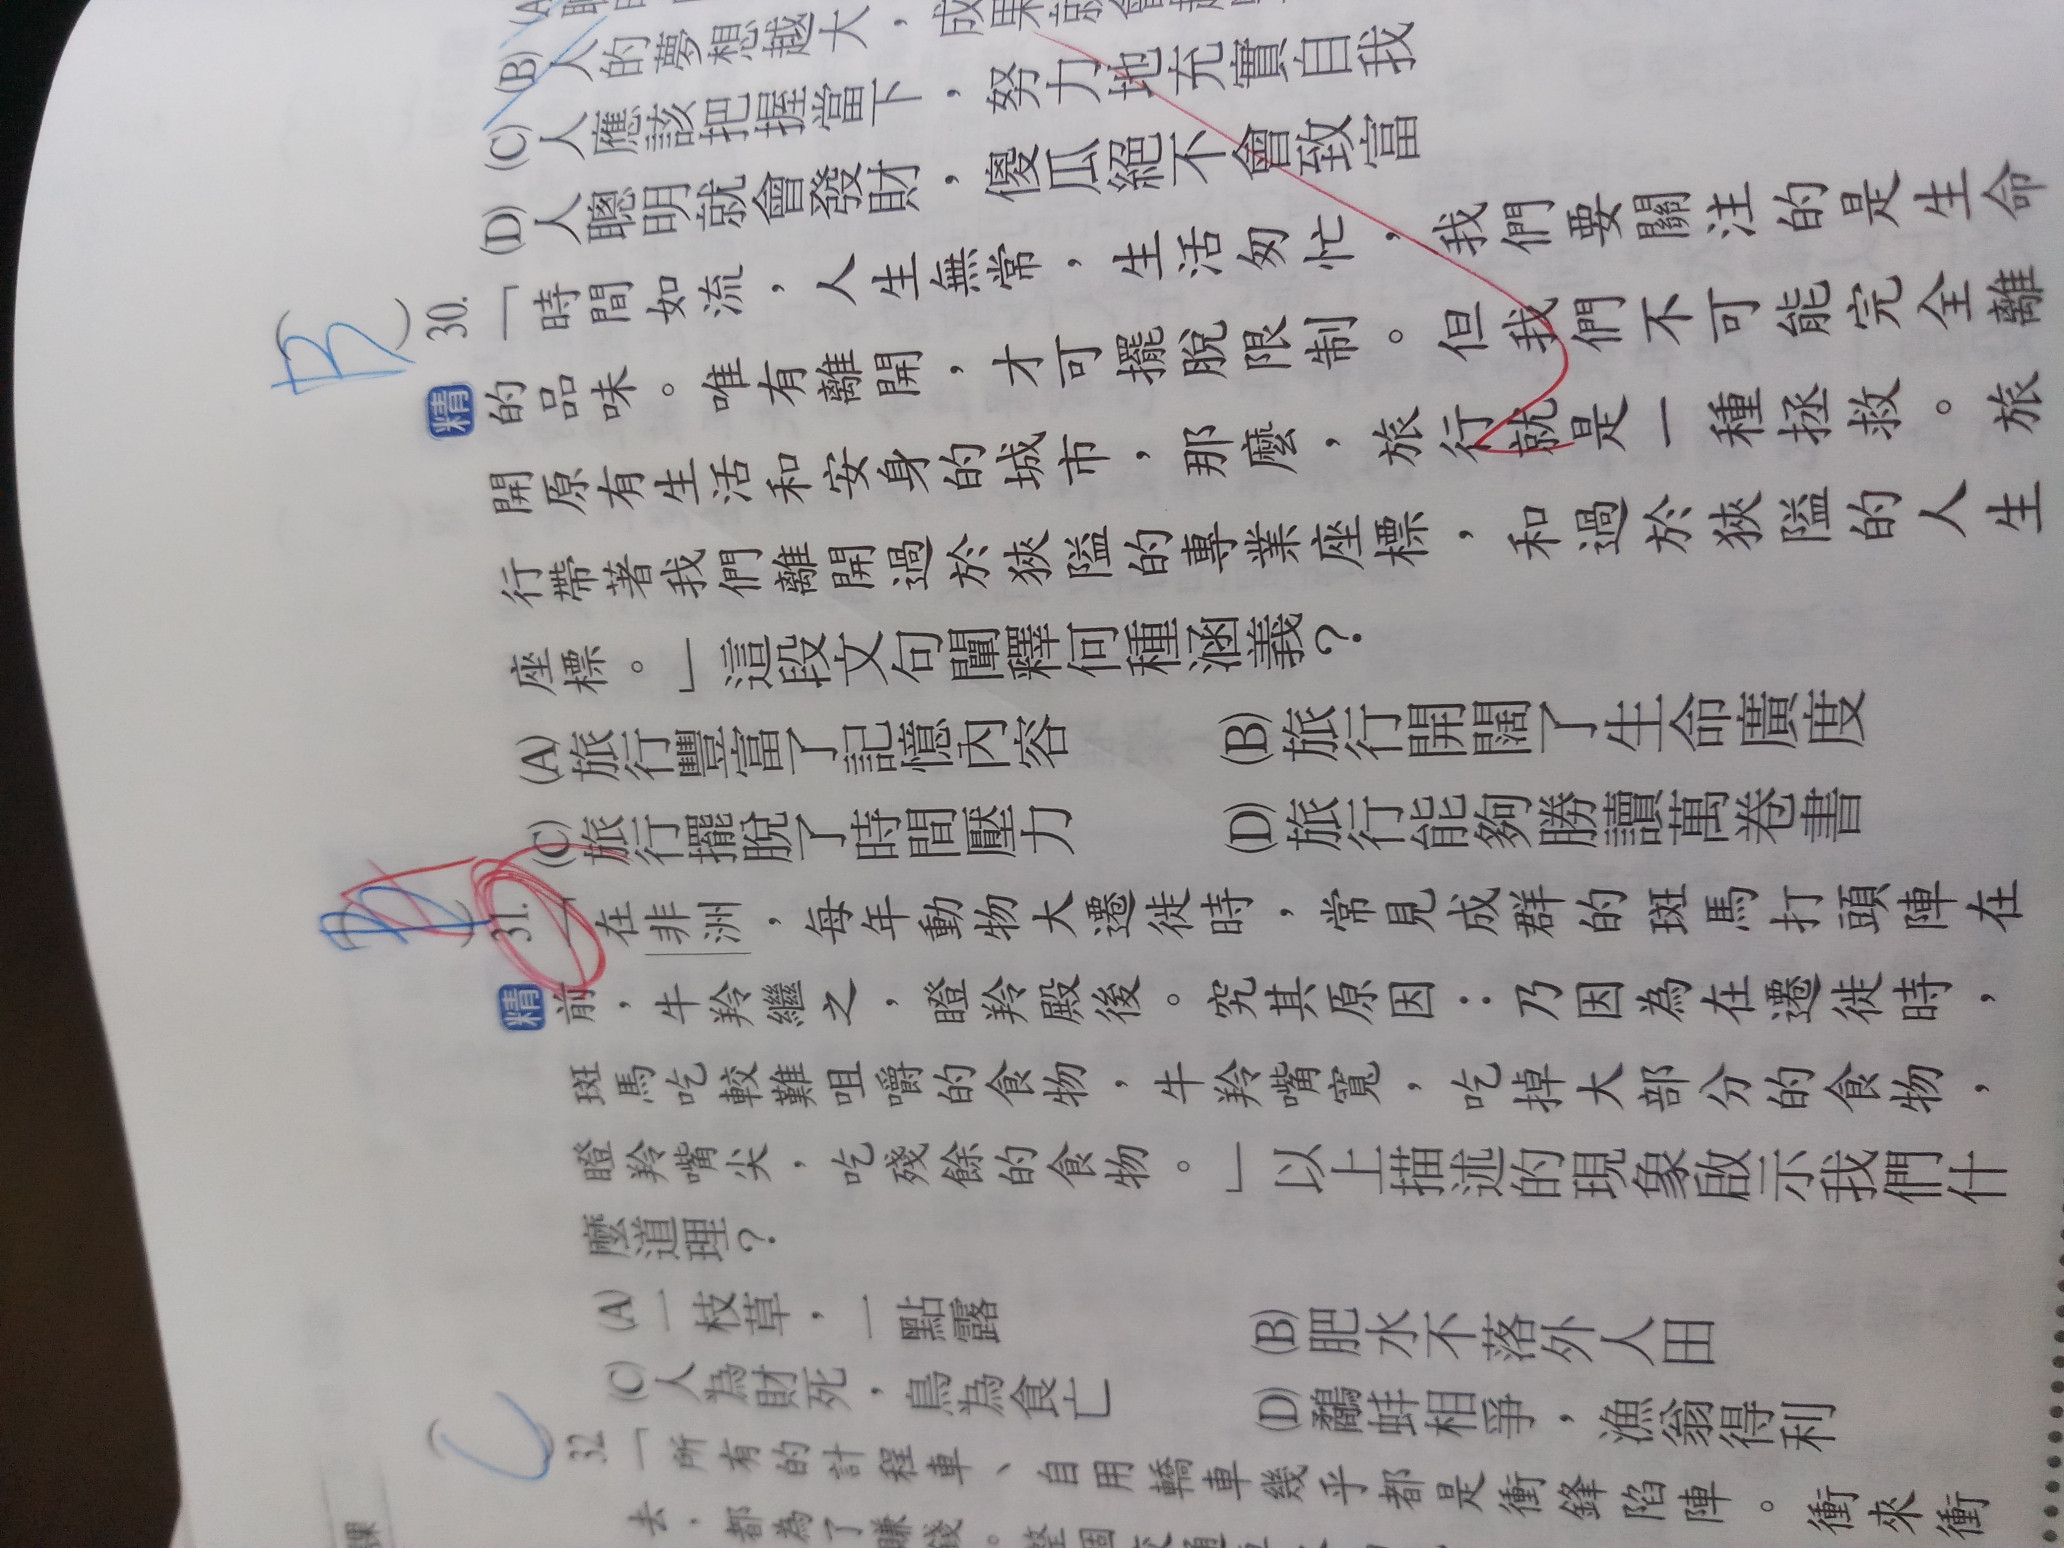 (B) 人的夢想越大，成果就會
(C) 人應該把握當下，努力地充實自我
(D) 人聰明就會發財，傻瓜絕不會致富
B
精 30. 「時間如流，人生無常，生活匆忙，我們要關注的是生命
的品味。唯有離開，才可擺脫限制。但我們不可能完全離
開原有生活和安身的城市，那麼，旅行就是一種拯救。旅
行帶著我們離開過於狹隘的專業座標，和過於狹隘的人生
座標。」這段文句闡釋何種涵義？
(A) 旅行豐富了記憶內容 (B) 旅行開闊了生命廣度
(C) 旅行擺脫了時間壓力 (D) 旅行能夠勝讀萬卷書
精 31. 「在非洲，每年動物大遷徙時，常見成群的斑馬打頭陣在
前，牛羚繼之，瞪羚殿後。究其原因：乃因為在遷徙時，
斑馬吃較難咀嚼的食物，牛羚嘴寬，吃掉大部分的食物，
瞪羚嘴尖，吃殘餘的食物。」以上描述的現象啟示我們什
麼道理？
(A) 一枝草，一點露 (B) 肥水不落外人田
(C) 人為財死，鳥為食亡 (D) 鷸蚌相爭，漁翁得利
C
32 「所有的計程車、自用轎車幾乎都是衝鋒陷陣。衝來衝
去，都為了賺錢。整個
課